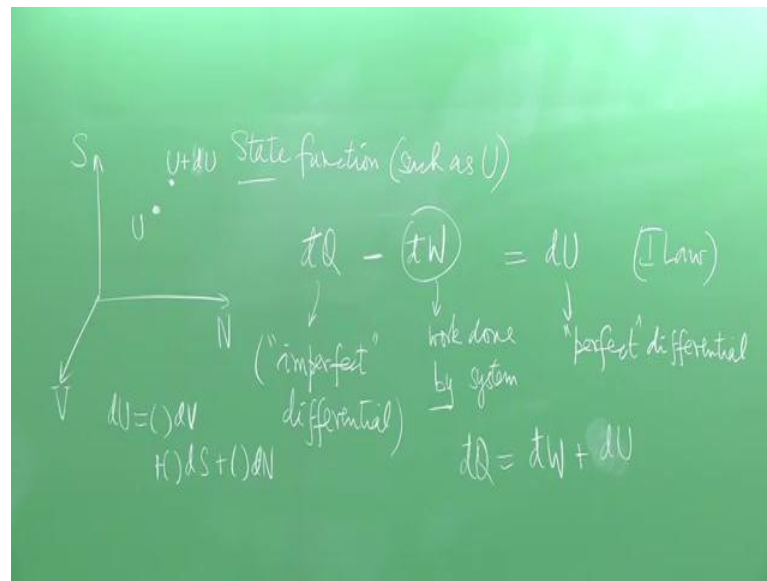 S
U+dU State function (such as U)
U
đQ - đW = dU (I Law)
N
V
("imperfect" differential)
work done by system
"perfect" differential
dU = ( ) dV
+( ) dS + ( ) dN
đQ = đW + dU